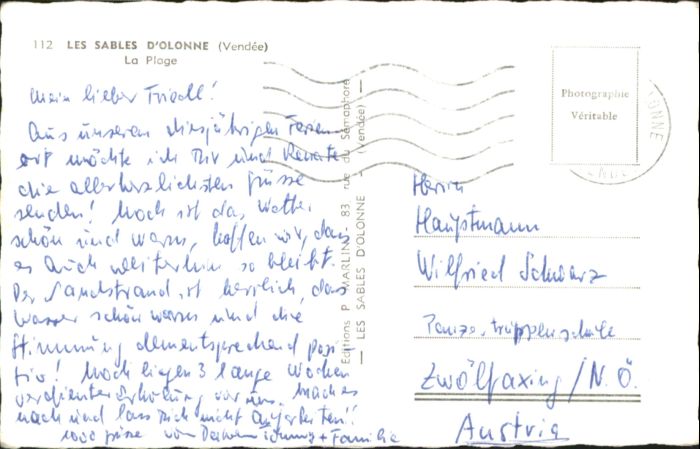 112 LES SABLES D'OLONNE (Vendée)
La Plage
Mein lieber Friedl!
Aus unserem diesjährigen Ferien-
ort möchte ich Dir und Renate
die allerherzlichsten Grüsse
senden! Noch ist das Wetter
schön und warm, hoffen wir, dass
es auch weiterhin so bleibt.
Der Sandstrand ist herrlich, das
Wasser schön warm und die
Stimmung dementsprechend posi-
tiv! Noch liegen 3 lange Wochen
verdienter Erholung vor uns. Mach es
nach und lass Dich nicht aufarbeiten!!
1000 Grüsse von Deinem + Familie
Editions P. MARLIN - 83 rue du Sémaphore
— LES SABLES D'OLONNE (Vendée) —
Photographie
Véritable
OLONNE
Herrn
Hauptmann
Wilfried Schwarz
Panzertruppenschule
Zwölfaxing / N.Ö.
Austria